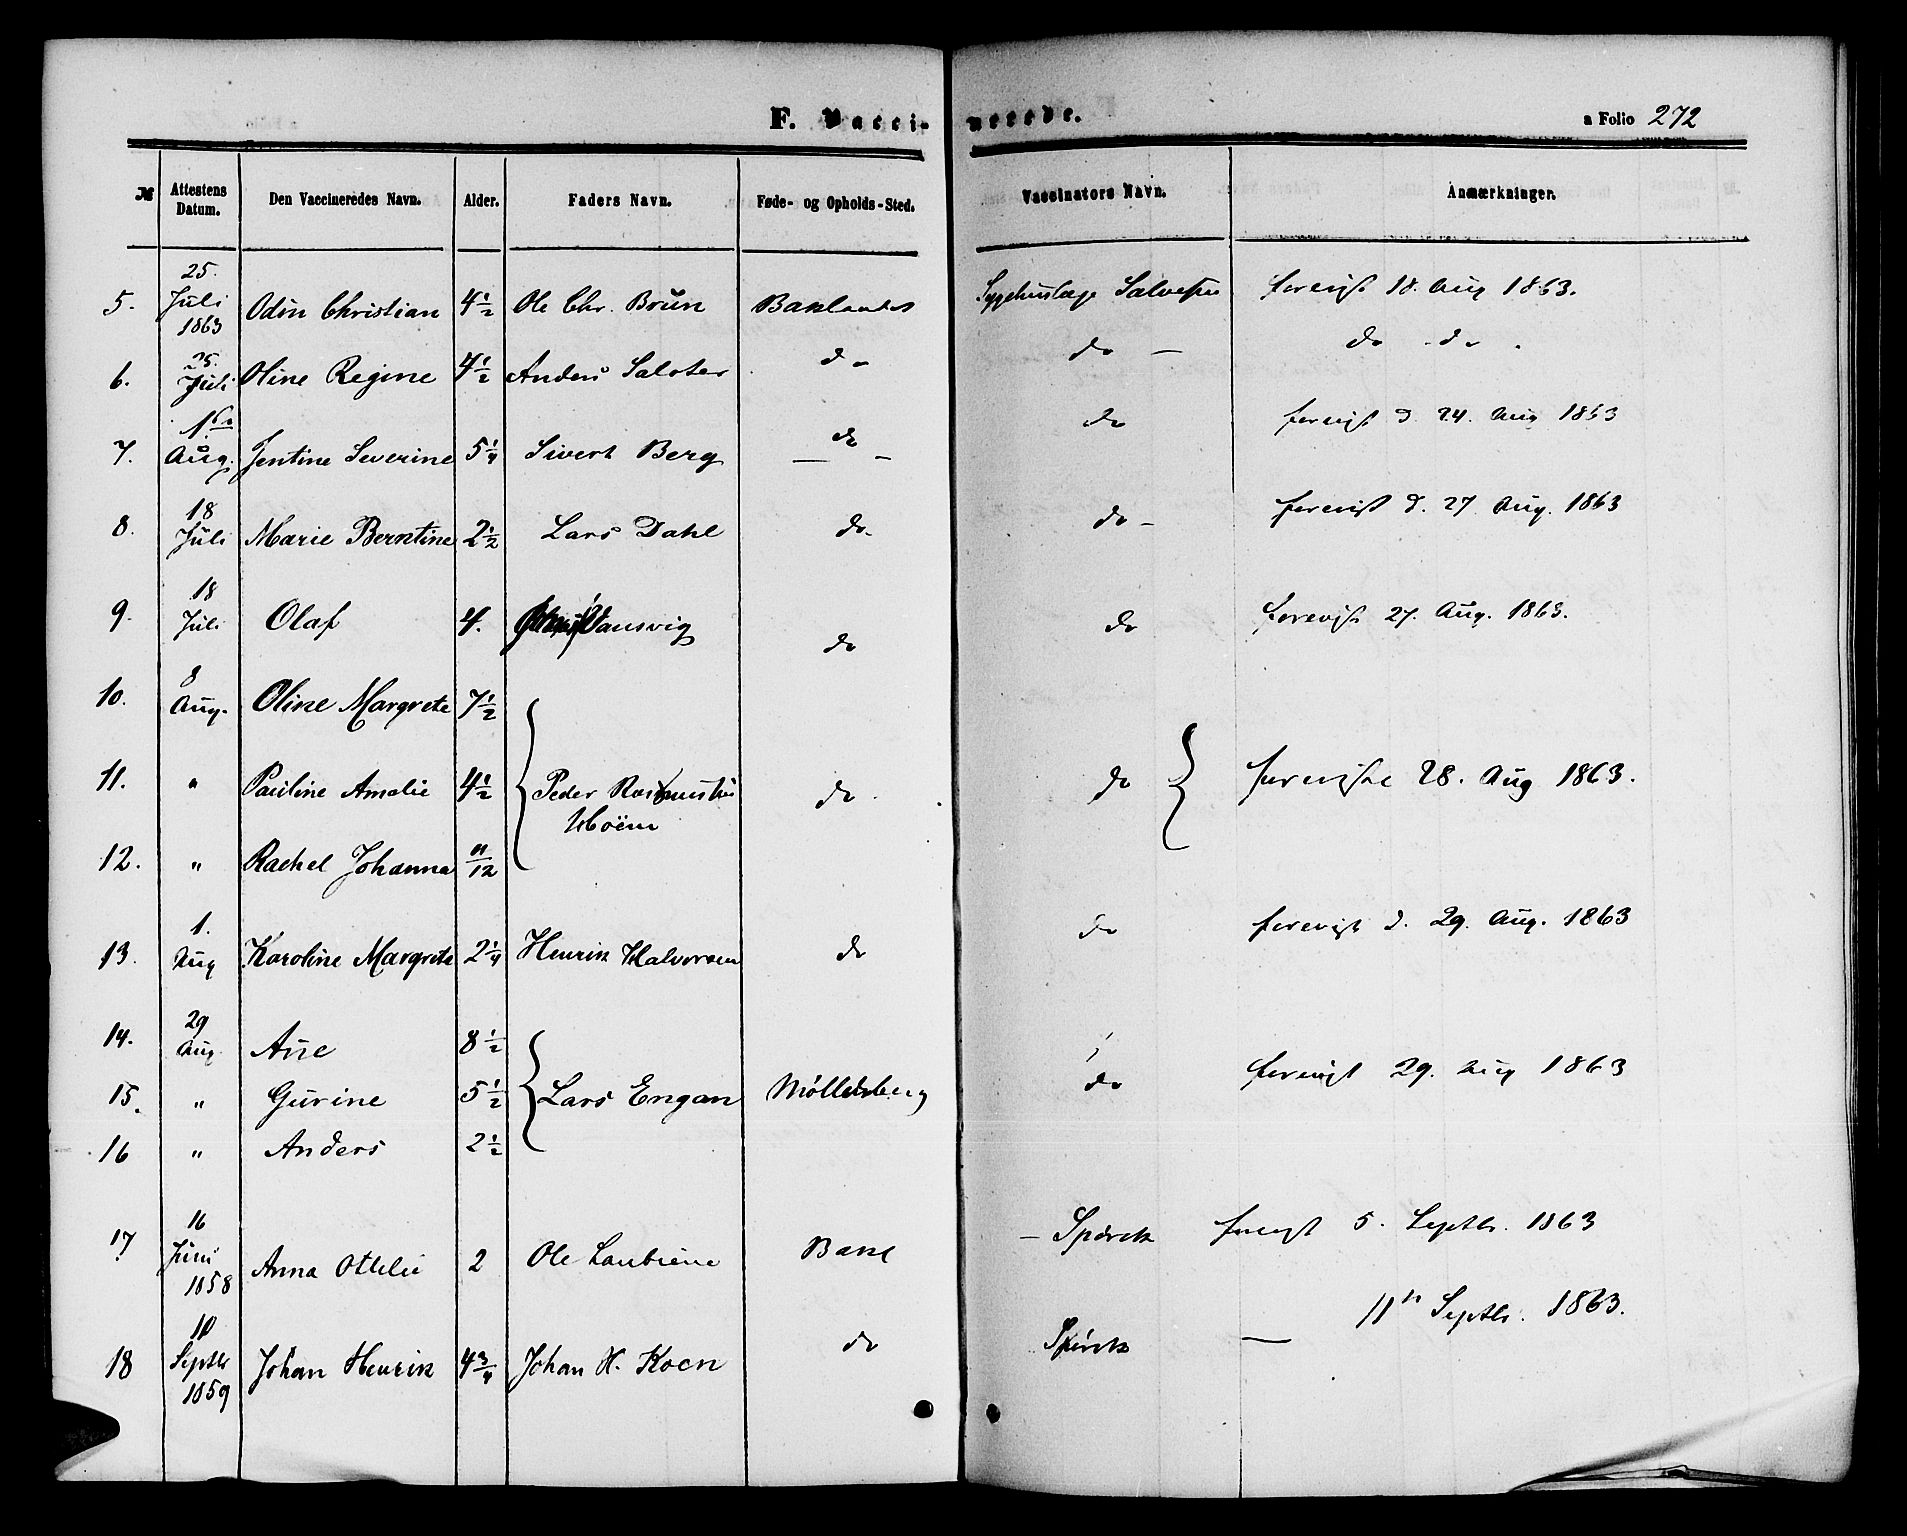 F. Vaccinerede.
a Folio 272
№ Attestens Datum. Den Vaccineredes Navn. Alder. Faders Navn. Føde- og Opholds-Sted. Vaccinators Navn. Anmærkninger.
5. 25. Juli 1863 Odin Christian 4 1/2 Ole Chr. Brün Baklandet Sygehuslæge Salvesen forevist 18. Aug 1863.
6. 25. Juli Oline Regine 4 1/2 Anders Salater do do - do do
7. 1ste Aug. Jentine Severine 5 1/4 Sivert Berg do do forevist d. 24. Aug 1863
8. 18 Juli Marie Berntine 2 1/2 Lars Dahl do do - forevist d. 27 Aug. 1863
9. 18 Juli Olaf 4. Dansvig do do forevist 27. Aug. 1863.
10. 8 Aug. Oline Margrete 7 1/2
11. " Pauline Amalie 4 1/2 Peder do do foreviste 28. Aug 1863.
Hoëm
12. " Rachel Johanna 11/12
13. 1. Aug Karoline Margrete 2 1/4 Henrik Halvorsen do do forevist d. 29. Aug. 1863
14. 29 Aug. Ane 8 1/2
15. " Gurine 5 1/2 Lars Engan Møllenberg do forevist 29. Aug 1863
16 " Anders 2 1/2
17 16 Juni 1858 Anna Otelie 2 Ole Bakl - Spørck forevist 5. Septbr. 1863
18 10 Septbr 1859 Johan Henrik 4 3/4 Johan H. Koen do Spørck — 11te Septbr. 1863.